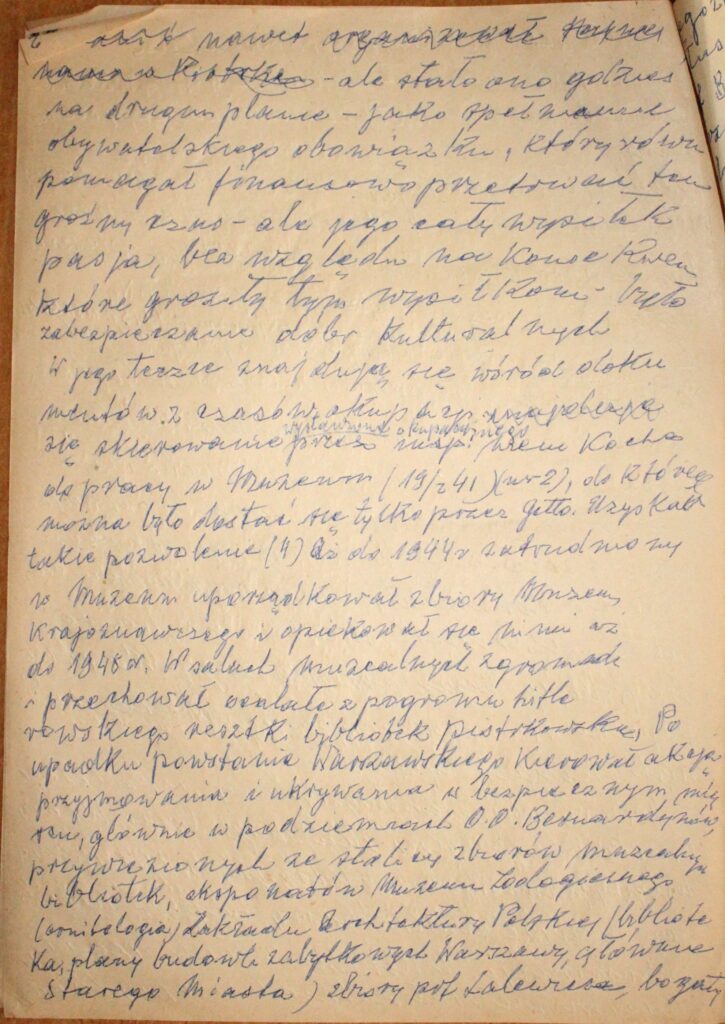 nawet
- ale stało ono gdzieś
na drugim planie - jako spełnienie
obywatelskiego obowiązku, który równ
pomagał finansowo przetrwać ten
groźny czas - ale jego cały wysiłek
pasja, bez względu na konsekwen
które groziły tym wysiłkom było
zabezpieczanie dóbr kulturalnych
W jego teczce znajdują się wśród doku
mentów z czasów okupacji znajduje
się skierowanie przez insp. Kocha
wystawione okupacyjnego
do pracy w Muzeum (19/2 41) (nr 2), do któreg
można było dostać się tylko przez getto. Uzyskał
takie pozwolenie (4) Aż do 1944 r zatrudniony
w Muzeum uporządkował zbiory Muzeum
Krajoznawczego i opiekował się nimi aż
do 1948 r. W salach muzealnych zgromadz
i przechował ocalałe z pogromu hitle
rowskiego resztki bibliotek piotrkowskich, Po
upadku powstania Warszawskiego kierował akcją
przyjmowania i ukrywania w bezpiecznym miej
scu, głównie w podziemiach O.O. Bernardynów,
przywiezionych ze stolicy zbiorów muzealnych
bibliotek, eksponatów Muzeum Zoologicznego
(ornitologia) Zakładu Architektury Polskiej (bibliote
ka, plany budowli zabytkowych Warszawy, głównie
Starego Miasta) zbiory prof Lalewicza, bogaty